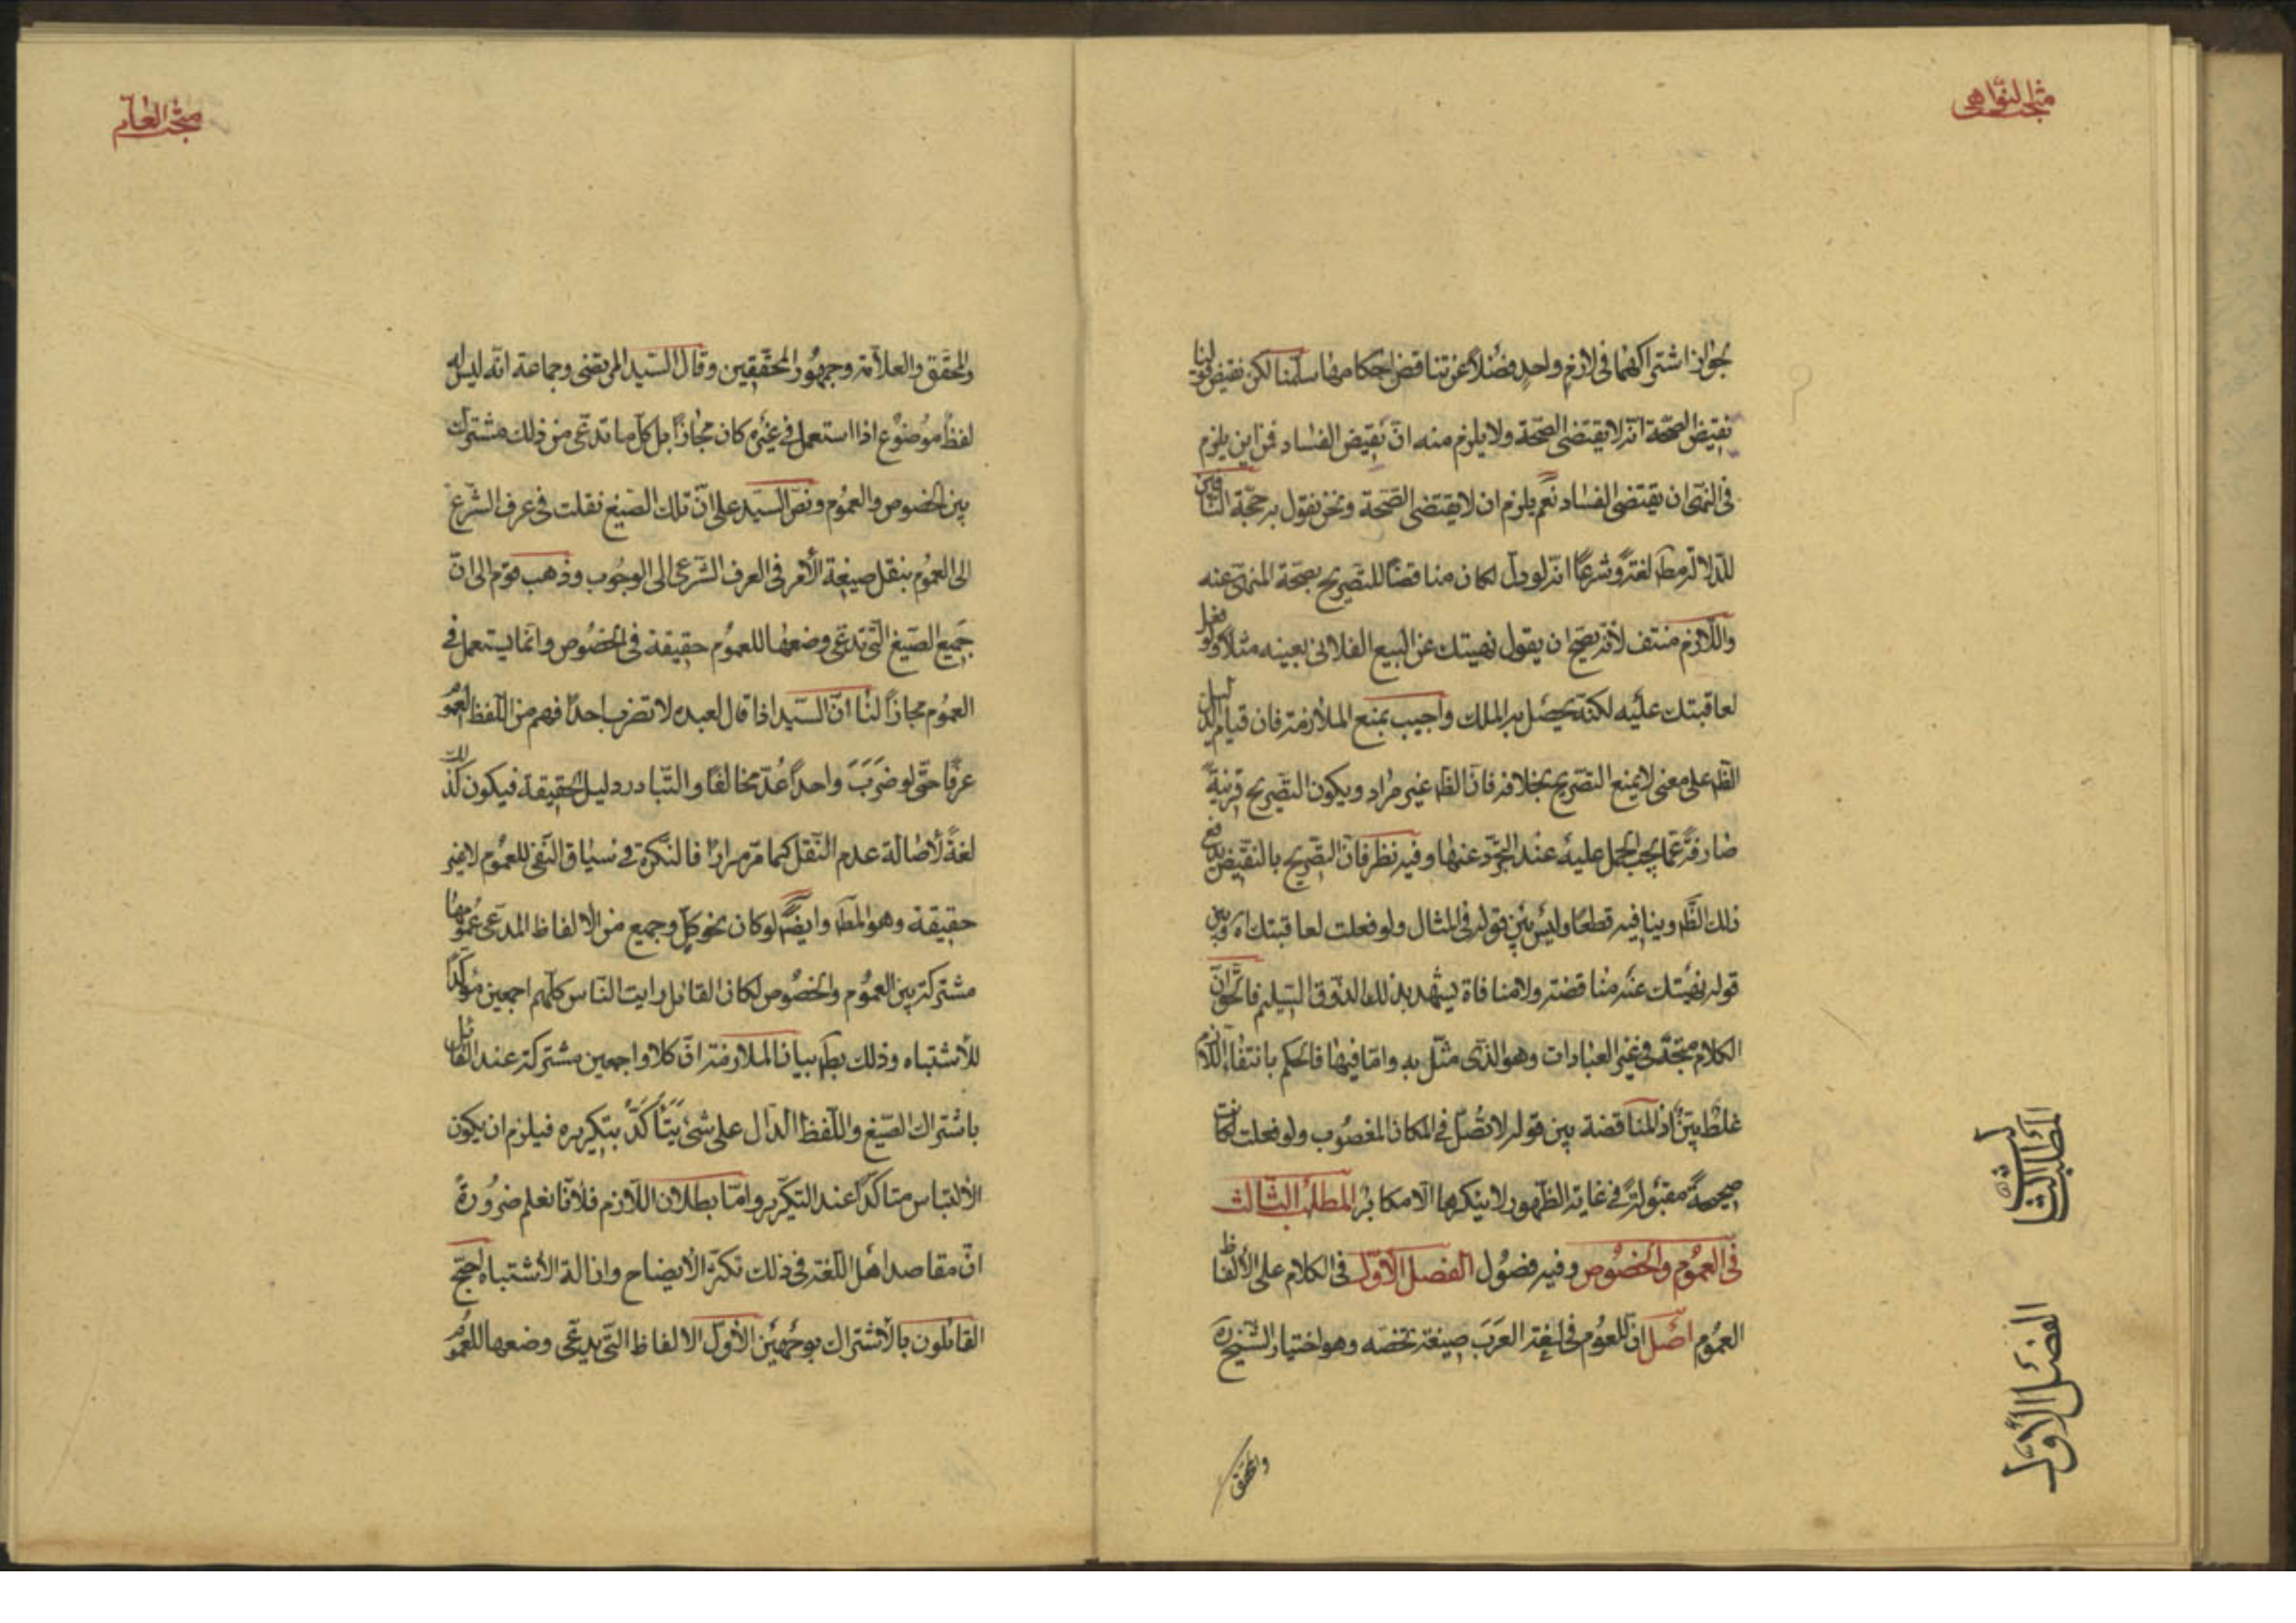 مبحث النواهی
لجواز اشتراكهما فى لازم واحد فضلا عن تناقض احكامهما سلمنا لكن نقيض قولنا
نقيض الصحة انه لا يقتضى الصحة ولا يلزم منه ان نقيض الفساد فمن اين يلزم
فى النهى ان يقتضى الفساد نعم يلزم ان لا يقتضى الصحة ونحن نقول به حجة النافين
للدلالة مط لغة وشرعا انه لو دل لكان مناقضا للتصريح بصحة المنهى عنه
واللازم منتف لانه يصح ان يقول نهيتك عن البيع الفلانى بعينه مثلا ولو فعل
لعاقبتك عليه لكنه يحصل به الملك واجيب بمنع الملازمة فان قيام الدليل
الظ على معنى لا يمنع التصريح بخلافه فان الظ غير مراد ويكون التصريح قرينة
صارفة عما يجب الحمل عليه عند التجرد عنها وفيه نظر فان التصريح بالنقيض يدفع
ذلك الظ وينافيه قطعا وليس بين قوله فى المثال ولو فعلت لعاقبتك اه وبين
قوله نهيتك عنه مناقضة ولا منافاة يشهد بذلك الذوق السليم فالحق ان
الكلام متجه فى غير العبادات وهو الذى مثل به واما فيها فالحكم بانتفاء اللازم
غلط بين اذ المناقضة بين قوله لا تصل فى المكان المغصوب ولو فعلت لكانت
صحيحة مقبولة فى غاية الظهور لا ينكرها الا مكابر المطلب الثالث
فى العموم والخصوص وفيه فصول الفصل الاول فى الكلام على الالفاظ
العموم اصل ان للعموم فى لغة العرب صيغة تخصه وهو اختيار الشيخ ره
والمحقق
المطلب الثالث
الفصل الاول
مبحث العام
والمحقق والعلامة وجمهور المحققين وقال السيد المرتضى وجماعة انه ليس له
لفظ موضوع اذا استعمل فى غيره كان مجازا بل كل ما تدعى من ذلك مشترك
بين الخصوص والعموم ونص السيد على ان تلك الصيغ نقلت فى عرف الشرع
الى العموم بنقل صيغة الامر فى العرف الشرعى الى الوجوب وذهب قوم الى ان
جميع الصيغ التى تدعى وضعها للعموم حقيقة فى الخصوص وانما يستعمل فى
العموم مجازا لنا ان السيد اذا قال لعبده لا تضرب احدا فهم من اللفظ العموم
عرفا حتى لو ضرب واحدا عد مخالفا والتبادر دليل الحقيقة فيكون كذلك
لغة لاصالة عدم النقل كما مر مرارا فالنكرة فى سياق النفى للعموم لا غير
حقيقة وهو المط وايضا لو كان نحو كل وجميع من الالفاظ المدعى عمومها
مشتركة بين العموم والخصوص لكان القائل رايت الناس كلهم اجمعين مؤكدا
للاشتباه وذلك بط بيان الملازمة ان كلا واجمعين مشتركة عند القائل
باشتراك الصيغ واللفظ الدال على شئ يتأكد بتكريره فيلزم ان يكون
الالتباس متاكدا عند التكرير واما بطلان اللازم فلانا نعلم ضرورة
ان مقاصد اهل اللغة فى ذلك تكثر الايضاح وازالة الاشتباه احتج
القائلون بالاشتراك بوجهين الاول الالفاظ التى يدعى وضعها للعموم